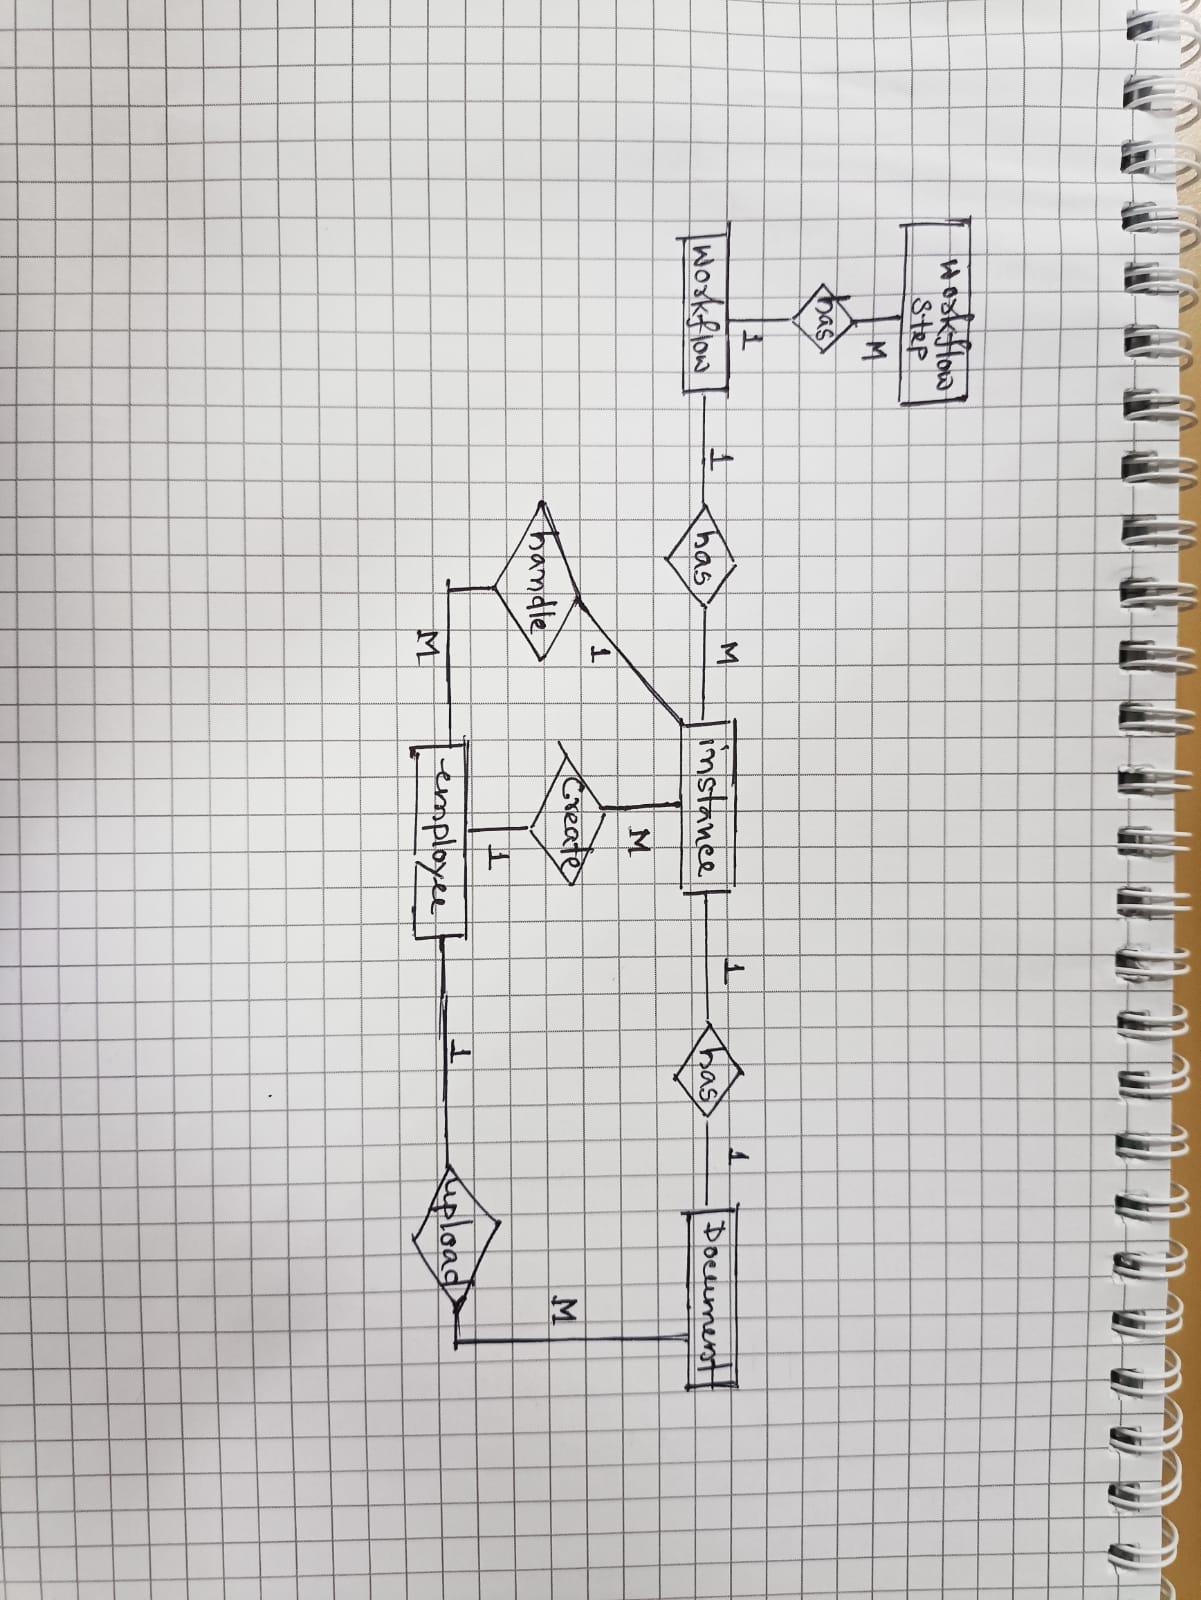 Workflow
Step
M
has
1
Workflow
1
has
M
instance
1
has
1
Document
1
M
M
handle
Create
1
M
employee
1
upload